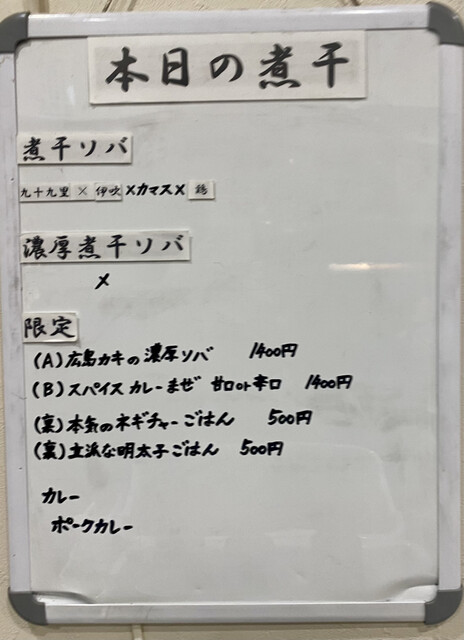 本日の煮干
煮干ソバ
九十九里×伊吹×カマス×鶏
濃厚煮干ソバ
×
限定
(A)広島カキの濃厚ソバ 1400円
(B)スパイスカレーまぜ 甘口or辛口 1400円
(裏)本気のネギチャーごはん 500円
(裏)立派な明太子ごはん 500円
カレー
ポークカレー